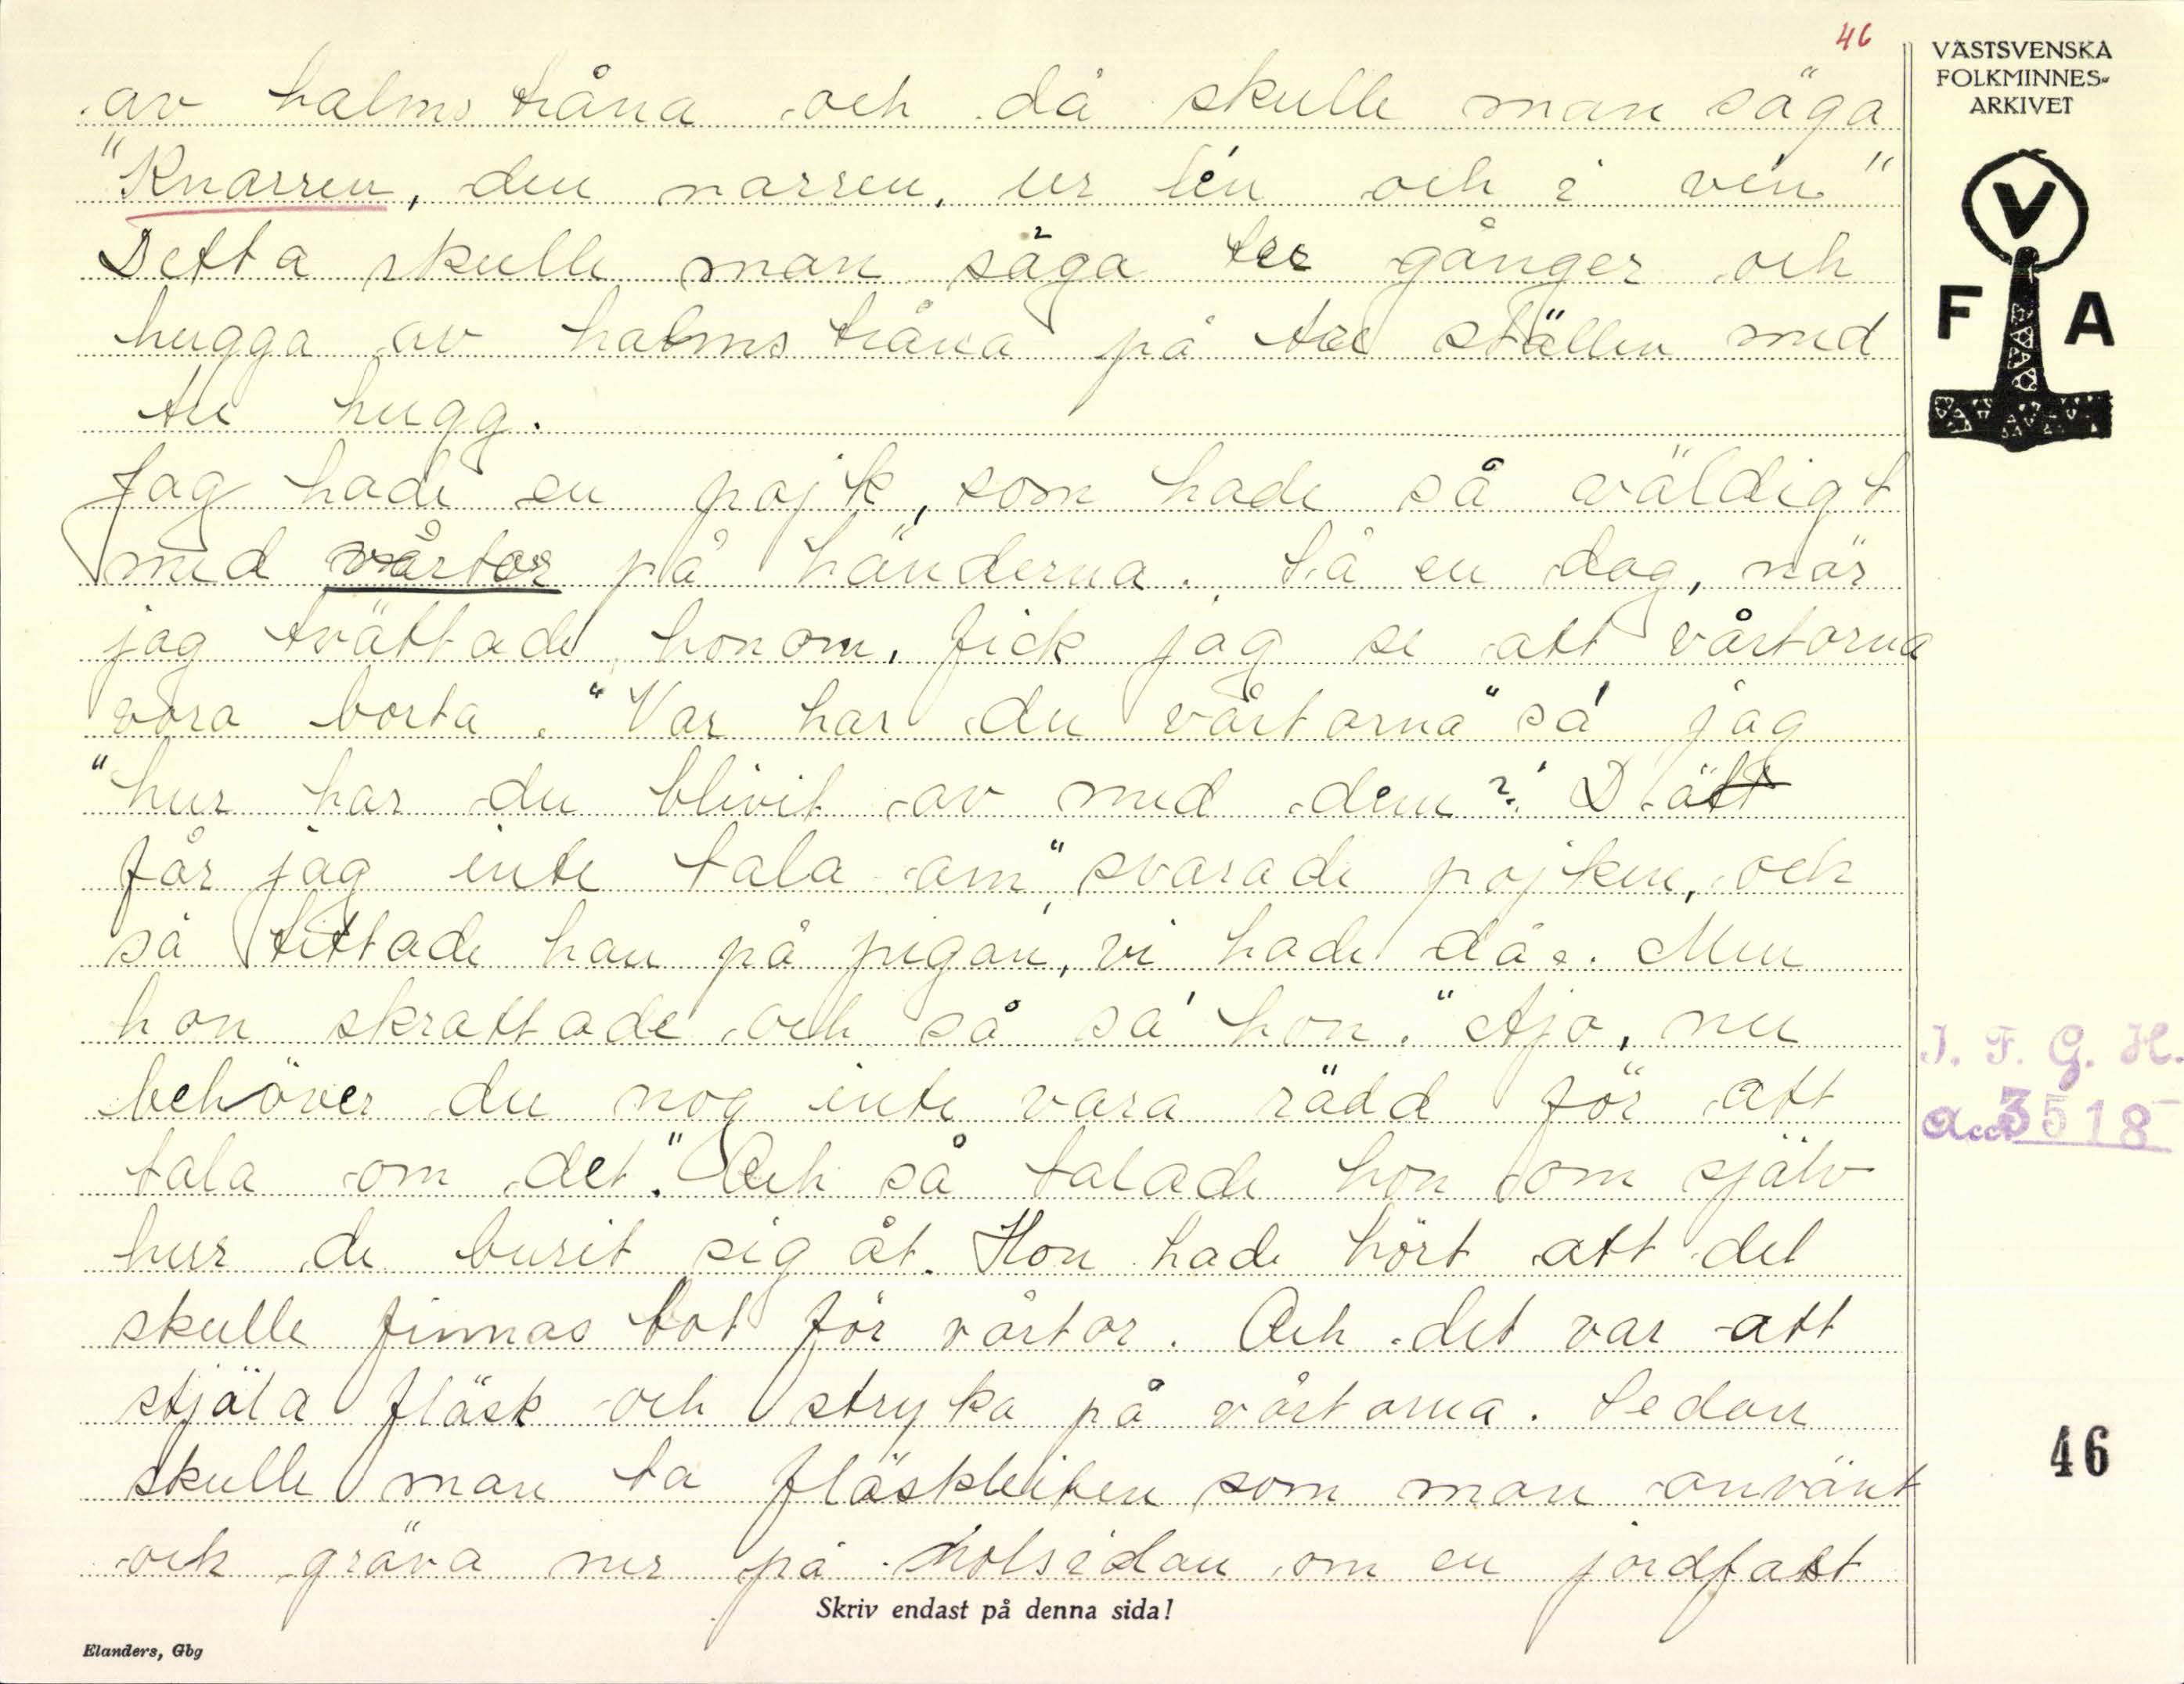 46
VÄSTSVENSKA
FOLKMINNES-
ARKIVET
V
F A
av halmstråna och då skulle man säga
"Knarren, den narren, ur lén och i vén"
Detta skulle man säga tre gånger och
hugga av halmstråna på tre ställen med
tre hugg.
Jag hade en pojk, som hade så väldigt
med vårtor på händerna. Så en dag, när
jag tvättade honom, fick jag se att vårtorna
vora borta. "Var har du vårtorna" sa' jag
"hur har du blivit av med dem?" D ä
får jag inte tala om", svarade pojken, och
så tittade han på pigan, vi hade då. Men
hon skrattade och så sa' hon. "Ajo, nu
behöver du nog inte vara rädd för att
tala om det." Och så talade hon om själv
hur de burit sig åt. Hon hade hört att det
skulle finnas bot för vårtor. Och det var att
stjäla fläsk och stryka på vårtorna. Sedan
skulle man ta fläskbiten som man använt
och gräva ner på nolsidan om en jordfast
J. F. G. H.
Acc 3518
46
Skriv endast på denna sida!
Elanders, Gbg